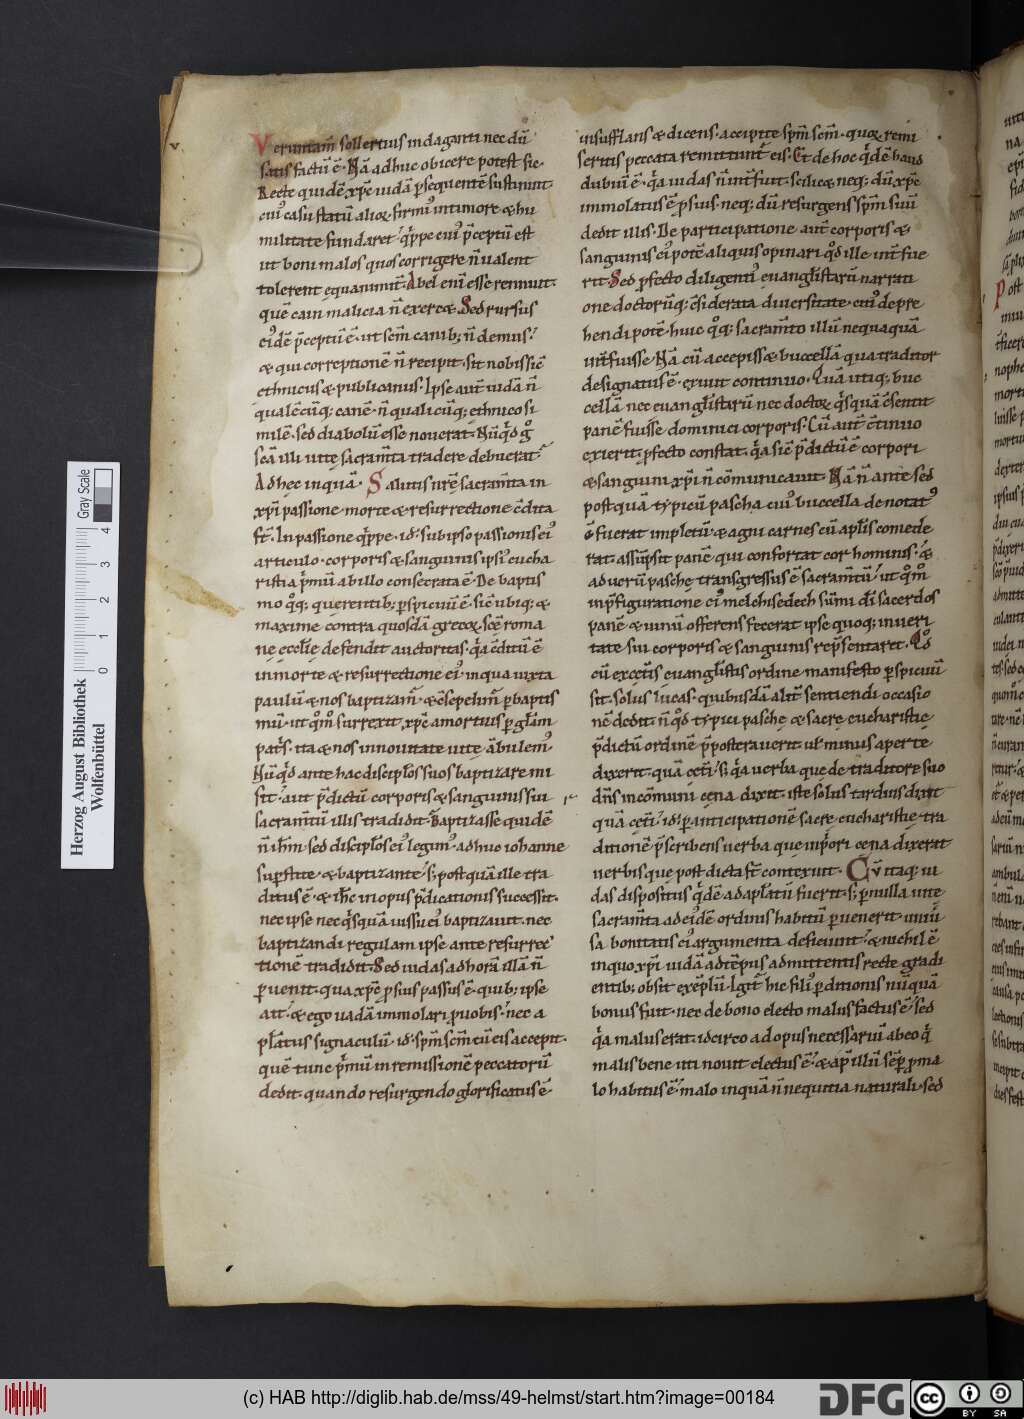 Verumtam̅ sollertius indaganti nec dū
satis factū ē. Nā adhuc obicere potest sic.
Recte quidē xp̅c iudā p̲sequentē sustinuit.
cui᷒ casu statū alioꝝ firmi᷒ in timore & hu
militate fundaret. q̅ppe cui᷒ p̅ceptū est
ut boni malos quos corrigere n̅ ualent
tolerent equanimit̅. Abel eni̅ esse rennuit.
quē cain malicia n̅ exercet. Sed rursus
ei᷒dē p̅ceptū ē. ut sc̅m canib; n̅ demus.
& qui correptionē n̅ recipit. sit nobis sic̅
ethnicus & publicanus. Ipse aut̅ iudā n̅
qualēcūq; canē. n̅ qualicūq; ethnico si
milē. sed diabolū esse nouerat. Nūq̊d g̊
sc̅a illi uite sacram̅ta tradere debuerat.
Ad hec inquā. Salutis nr̅ę sacram̅ta in
xp̅i passione morte & resurrectione c̅dita
st̅. In passione q̅ppe. id᷒ sub ipso passionis ei᷒
articulo. corporis & sanguinis ipsi᷒ eucha
ristia p̅mū ab illo consecrata ē. De baptis
mo q̊q; querentib; p̲spicuū ē. sic̅ ubiq; &
maxime contra quosdā grecoꝝ. sc̅ę roma
nę ecclię defendit auctoritas. q̅a c̅ditū ē
in morte & resurrectione ei᷒ in qua iuxta
paulū & nos baptizam̅. & c̅sepelim̅ p̲ baptis
mū. ut q̊m̊ surrexit xp̅c a mortuis p̲ gl̅am
pat̅s. ita & nos in nouitate uite ābulem᷒
Nūq̊d ante hac discip̅los suos baptizare mi
sit. aut p̅dictū corporis & sanguinis sui
sacram̅tū illis tradidit. Baptizasse quidē
n̅ ih̅m sed discip̅los ei᷒ legim᷒. adhuc iohanne
sup̲stite. & baptizante. s; postquā ille tra
ditus ē. & ih̅c in opus p̅dicationis successit.
nec ipse nec q̅squā iussu ei᷒ baptizauit. nec
baptizandi regulam ipse ante resurrec
tionē tradidit. Sed iudas ad horā illā n̅
p̲uenit. qua xp̅c p sius passus ē. quib; ipse
ait. & ego uadā immolari p uobis. nec a
pl̅atus signaculū. id᷒ sp̅m sc̅m cū eis accepit.
quē tunc p̅mū in remissionē peccatorū
dedit. quando resurgendo glorificatus ē.
insufflans & dicens. accipite sp̅m sc̅m. quoꝝ remi
seritis peccata remittunt̅ eis. Et de hoc q̅dē haud
dubiū ē. q̅a iudas n̅ int̅fuit. scilicet neq; dū xp̅c
immolatus ē p sius. neq; dū resurgens sp̅m suū
dedit illis. De participatione aut̅ corporis &
sanguinis ei᷒ potē aliquis opinari q̊d ille int̅fue
rit. Sed p̲fecto diligenti᷒ euangl̅istarū narrati
one doctorūq; c̅siderata diuersitate. citi᷒ depre
hendi potē. huic q̊q; sacram̅to illū nequaquā
int̅fuisse. Nā cū accepisset buccellā qua traditor
designatus ē. exiuit continuo. Quā utiq; buc
cellā nec euangl̅istarū nec doctoꝝ q̅squā c̅sentit
panē fuisse dominici corporis. Cū aut̅ c̅tinuo
exierit. p̲fecto constat. q̅a sic̅ p̅dictū ē corpori
& sanguini xp̅i n̅ cōmunicauit. Nā n̅ ante sed
postquā typicū pascha cui᷒ buccella de notat᷒
fuerat impletū. & agni carnes cū apl̅is comede
rat. assūpsit panē qui confortat cor hominis. &
ad uerū pasche transgressus ē sacram̅tū. ut q̊m̊
in p̅figuratione ei᷒ melchisedech sūmi dī sacerdos
panē & uinū offerens fecerat ipse quoq; in ueri
tate sui corporis & sanguinis rep̅sentaret. Q̊d
cū except̅s euangl̅istis ordine manifesto p̲spicuū
sit. solus lucas. quibusdā alit̅ sentiendi occasio
nē dedit. n̅ q̊d typici paschę & sacrę eucharistię
p̅dictū ordinē p̅posterauerit. ul̅ minus aperte
dixerit. quā cet̅i. s; q̅a uerba que de traditore suo
dn̅s in cōmuni cena dixit. iste solus tardius dixit
quā cet̅i. id᷒ p̲ anticipationē sacrę eucharistię tra
ditionē p̅scribens uerba que in p̅ori cena dixerat
uerbis que post dicta st̅ contexuit. Cū itaq; iu
das dispositus q̅dē ad apl̅atū fuerit. s; p nulla uite
sacram̅ta ad ei᷒dē ordinis habitū p̲uenerit uniu̅
sa bonitatis ei᷒ argumenta deficiunt. & nichil ē
in quo xp̅i iudā ad tēpus admittentis recte gradi
entib; obsit exēplū. Igit̅ hic fili᷒ p̲ditionis nūquā
bonus fuit. nec de bono electo malus factus ē. sed
q̅a malus erat. idcirco ad opus necessariū ab eo q̅
malis bene uti nouit electus ē. & ap̅ illū sēp̲ p ma
lo habitus ē. malo inquā n̅ nequitia naturali. sed
Herzog August Bibliothek
Wolfenbüttel
Gray Scale
0 1 2 3 4
(c) HAB http://diglib.hab.de/mss/49-helmst/start.htm?image=00184
DFG
cc BY SA